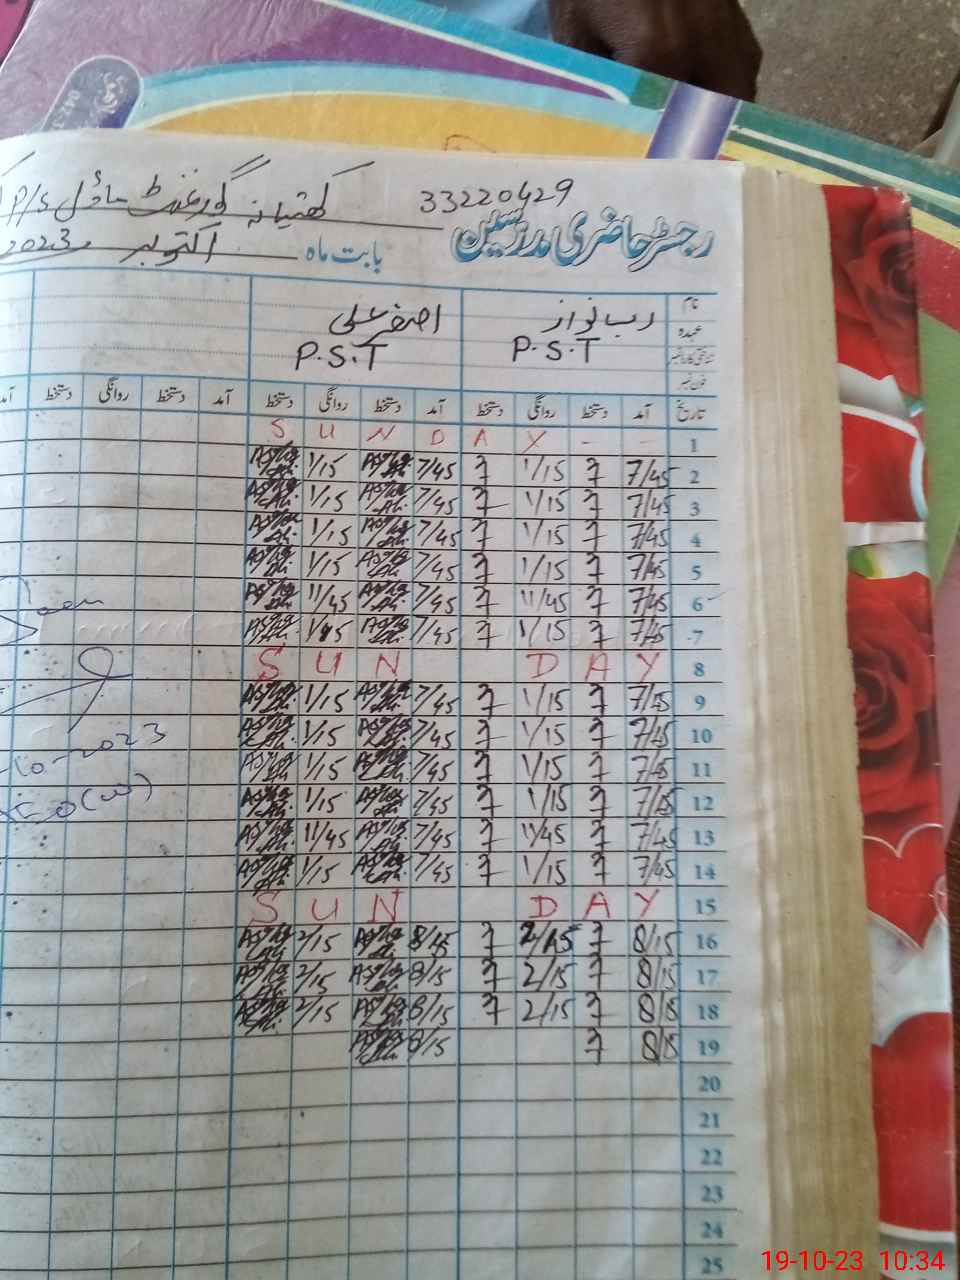 33220429
رجسٹر حاضری مدرسین
گورنمنٹ ماڈل P/S
بابت ماہ اکتوبر 2023
نام رب نواز اصغر علی
عہدہ P.S.T P.S.T
شناختی کارڈ نمبر
فون نمبر
تاریخ آمد دستخط روانگی دستخط آمد دستخط روانگی دستخط آمد دستخط روانگی دستخط آمد
1 S U N D A Y - -
2 7/45 1/15 7/45 1/15
3 7/45 1/15 7/45 1/15
4 7/45 1/15 7/45 1/15
5 7/45 1/15 7/45 1/15
6 7/45 11/45 7/45 11/45
7 7/45 1/15 7/45 1/15
8 S U N D A Y
9 7/45 1/15 7/45 1/15
10 7/45 1/15 7/45 1/15
11 7/45 1/15 7/45 1/15
12 7/45 1/15 7/45 1/15
13 7/45 11/45 7/45 11/45
14 7/45 1/15 7/45 1/15
15 S U N D A Y
16 8/15 2/15 8/15 2/15
17 8/15 2/15 8/15 2/15
18 8/15 2/15 8/15 2/15
19 8/15 8/15
20
21
22
23
24
25
10-2023
19-10-23 10:34